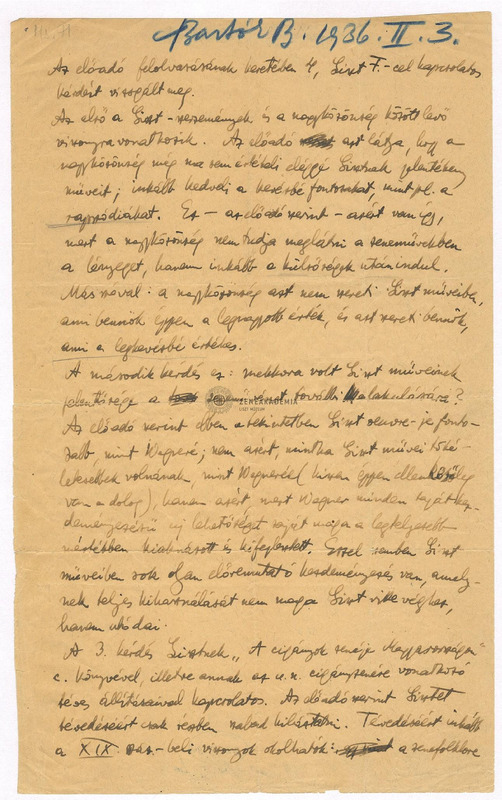 Bartók B. 1936. II. 3.
Az előadó felolvasásának keretében 4, Liszt F.-cel kapcsolatos
kérdést vizsgált meg.
Az első a Liszt-szerzemények és a nagyközönség közötti levő
viszonyra vonatkozik. Az előadó azt látja, hogy a
nagyközönség még ma sem értékeli eléggé Lisztnek jelentékeny
műveit; inkább kedveli a kevésbé fontosakat mint pl. a
rapszódiákat. Ez – az előadó szerint – azért van így,
mert a nagyközönség nem tudja meglátni a zeneművekben
a lényeget, hanem inkább a külsőségek után indul.
Más szóval: a nagyközönség azt nem szereti Liszt műveiben,
ami bennök éppen a legnagyobb érték, és azt szereti bennök,
ami a legkevésbé értékes.
A második kérdés ez: mekkora volt Liszt műveinek
jelentősége a zeneművészet további alakulására?
ZENEAKADÉMIA
LISZT MÚZEUM
Az előadó szerint ebben a tekintetben Liszt oeuvre-je fonto-
sabb, mint Wagneré; nem azért, mintha Liszt művei töké-
letesebbek volnának, mint Wagneréi (hiszen éppen ellenkezőleg
van a dolog), hanem azért mert Wagner minden saját kez-
deményezésű új lehetőséget saját maga a legteljesebb
mértékben kiaknázott és kifejlesztett. Ezzel szemben Liszt
műveiben sok olyan előremutató kezdeményezés van, amely-
nek teljes kihasználását nem maga Liszt vitte véghez,
hanem utódai.
A 3. kérdés Lisztnek „A cigányok zenéje Magyarországon"
c. könyvével, illetve annak az u. n. cigányzenére vonatkozó
téves állításaival kapcsolatos. Az előadó szerint Lisztet
tévedéséért csak részben szabad hibáztatni. Tévedéséért inkább
a XIX. száz-beli viszonyok okolhatók: a zenefolklore